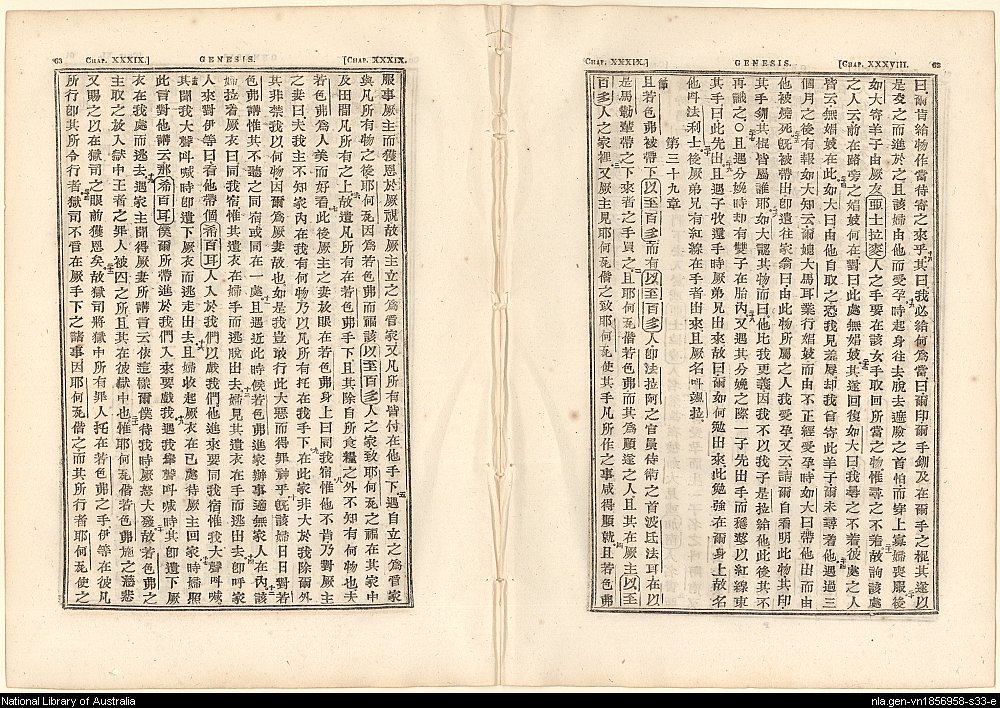 CHAP. XXXIX.] GENESIS. [CHAP. XXXVIII. 62
曰爾肯給物作當待寄之來乎其曰我必給何為當曰爾印爾手釧及在爾手之棍其遂以
是交之而進於之且該婦由他而受孕時起身往去脫去遮臉之首怕而穿上寡婦喪服後
如大寄羊子由厥友亞土拉麥人之手要在該女手取回所當之物惟尋之不着故詢該處
之人云前在路旁之娼妓何在對曰此處無娼妓其遂回復如大曰我尋之不着彼處之人
皆云無娼妓在此如大曰由他自取之恐我見羞辱却我曾寄此羊子爾未尋着他遇過三
個月之後有報如大知云爾媳大馬耳業行娼妓而由不正經受孕時如大曰帶他出而由
他被燒死既被帶出即遣往家翁曰由此物所屬之人我受孕又云請爾自看明此物其印
其手釧其棍皆屬誰耶如大認其物而曰他比我更義因我不以我子是拉給他此後其不
再識之○且遇分娩時却有雙子在胎內又遇其分娩之際一子先出手而穩婆以紅線束
其手曰此先出且遇子收還手時厥弟見出來故曰爾如何勉出來此勉強在爾身上故名
他呌法利士後厥弟見有紅線在手者出來且厥名呌颯拉
第三十九章
且若色弗被帶下以至百多而有以至百多人卽法拉阿之官員侍衛之首波氐法耳在以
是馬勒輩帶之下來者之手買之且耶何瓦偕若色弗而其為順遂之人且其在厥主以至
百多人之家裡又厥主見耶何瓦偕之致耶何瓦使其手凡所作之事咸得順就且若色弗
63 CHAP. XXXIX.] GENESIS. [CHAP. XXXIX.
服事厥主而獲恩於厥視故厥主立之為管家又凡所有皆付在他手下遇自立之為管家
與凡所有物之後耶何瓦因為若色弗而福該以至百多人之家致耶何瓦之福在其家中
及田間凡所有之上故遺凡所有在若色弗手下且其除自所食糧之外不知有何物也夫
若色弗為人美而好看此後厥主之妻放眼在若色弗身上曰同我宿惟他不肯乃對厥主
之妻曰夫我主不知家內在我有何物乃以凡所有托在我手下在此家非大於我除爾外
其非禁我以何物因爾為厥妻故也如是我豈敢行此大惡而得罪神乎既該婦日日對若
色弗講惟其不聽之同宿或同在一處且遇近此時候若色弗進家辦事適無家人在內該
婦拉着厥衣曰同我宿惟其遺衣在婦手而逃脫出去婦見其遺衣在手而逃出去卽呼家
人來對伊等曰看他帶個希百耳人人於我們以戲我們他進來要同我宿惟我大聲呌喊
其聞我大聲呌喊時卽遺下厥衣而逃走出去且婦收起厥衣在已處待厥主回家時婦照
此言對他講云那希百耳僕爾所帶進於我們入來要戲我遇我舉聲呌喊時其卽遺下厥
衣在我處而逃去遇家主聞得厥妻所講言云依這樣爾僕待我時厥怒大發故若色弗之
主取之放入獄中王者之罪人被囚之所且其在彼獄中也惟耶何瓦偕若色弗施之慈悲
又賜之以在獄司之眼前獲恩矣故獄司將獄中所有罪人托在若色弗之手伊等在彼凡
所行卽其所令行者獄司不管在厥手下之諸事因耶何瓦偕之而其所行者耶何瓦使之
National Library of Australia
nla.gen-vn1856958-s33-e